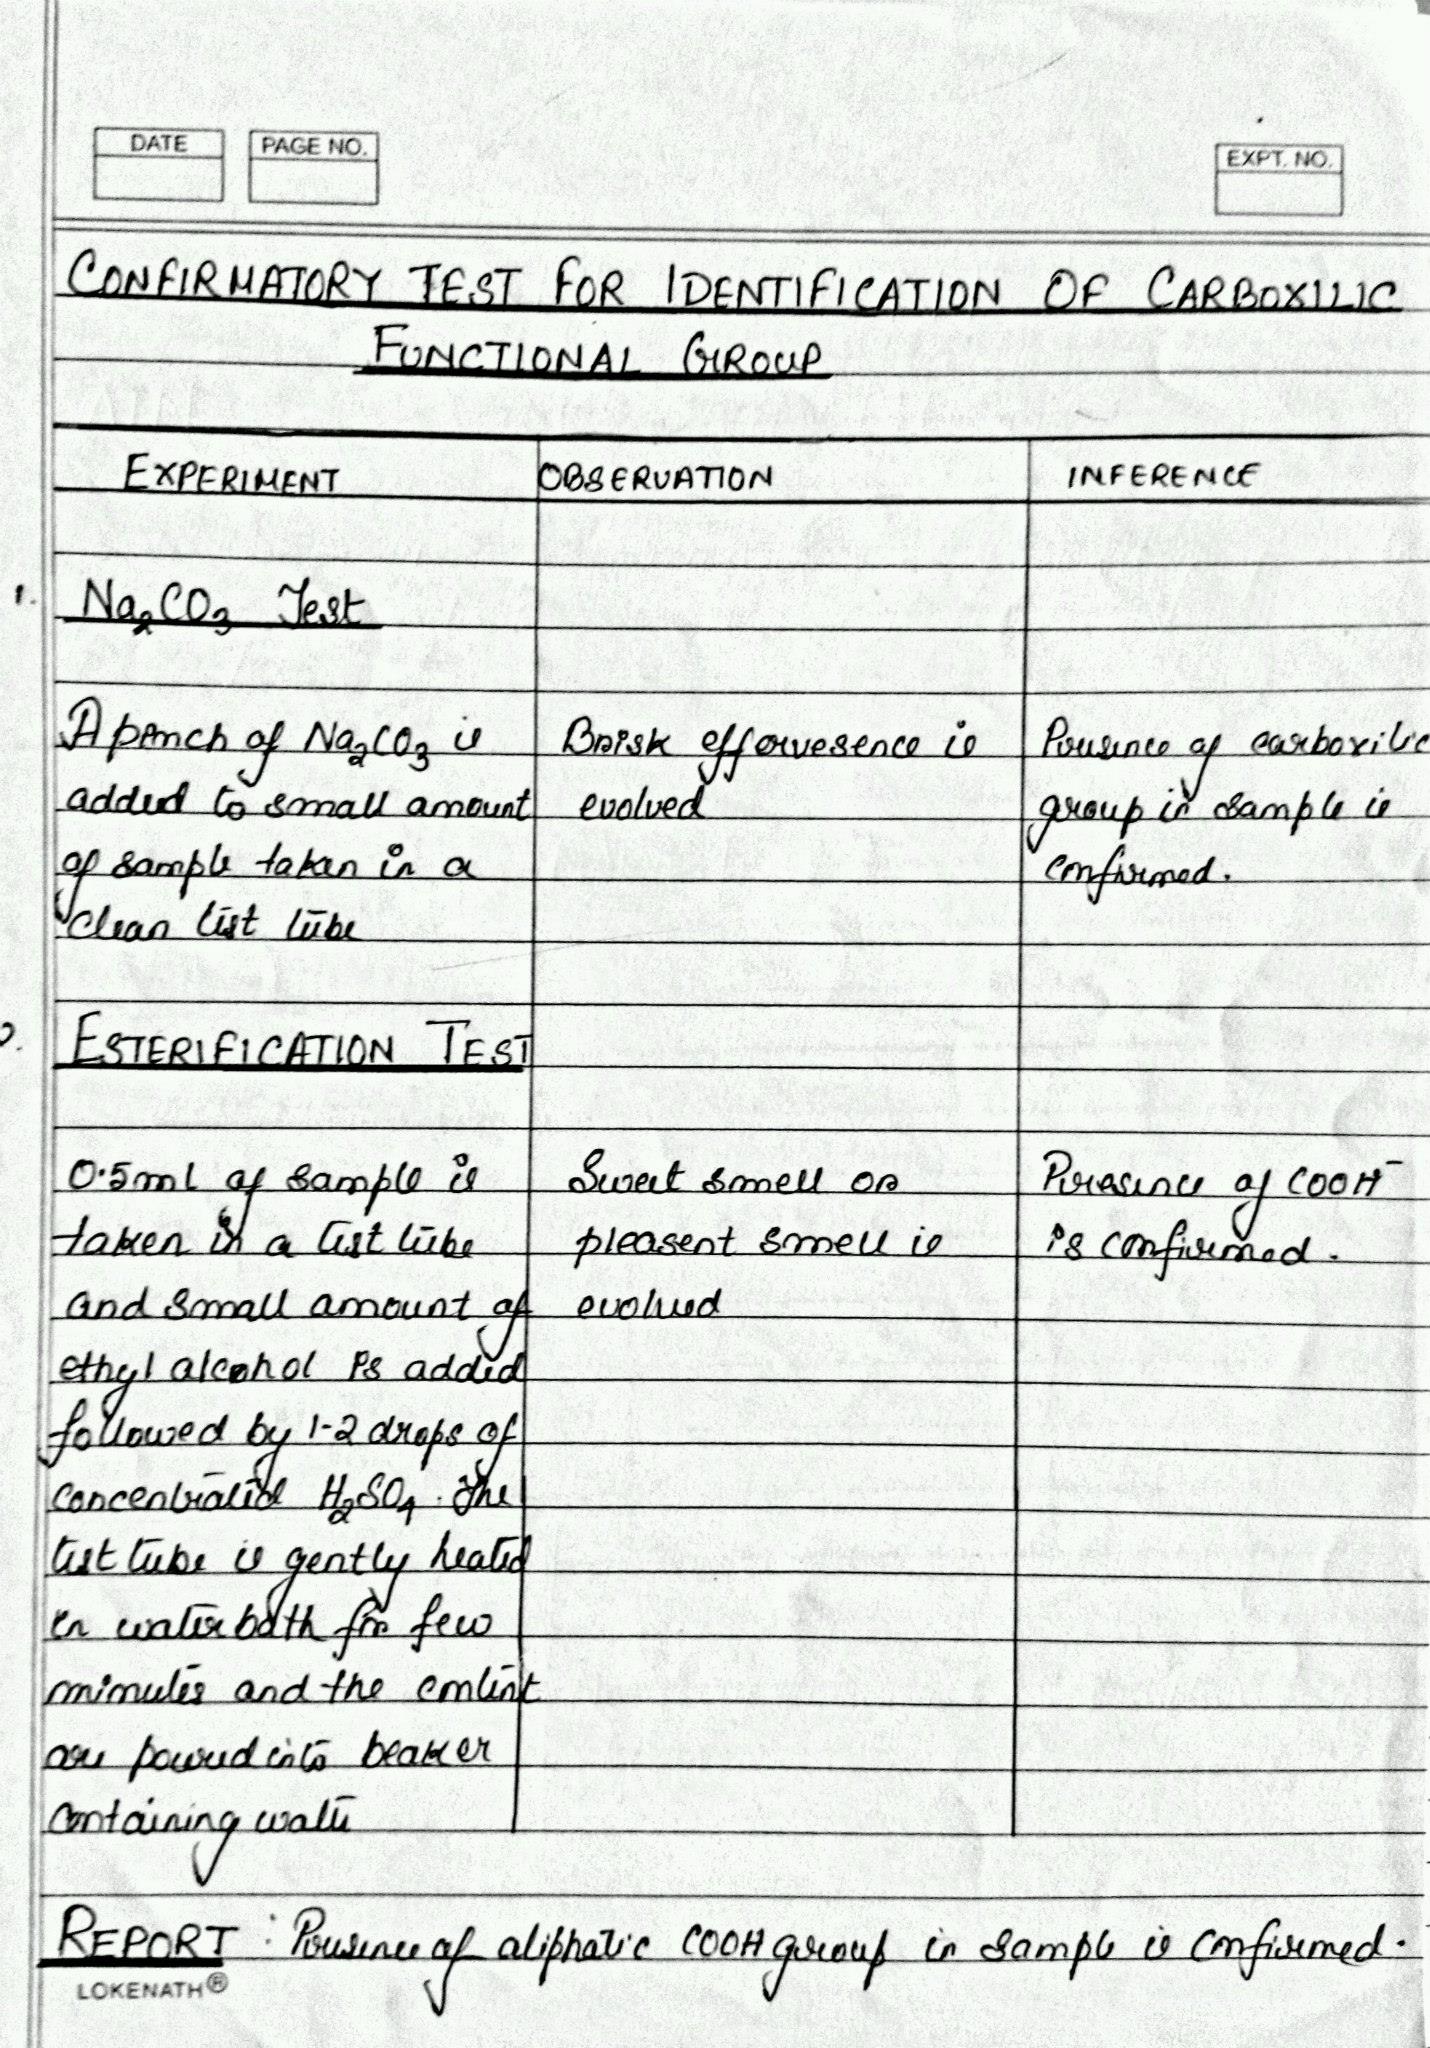 DATE
PAGE NO.
EXPT. NO.
CONFIRMATORY TEST FOR IDENTIFICATION OF CARBOXILIC
FUNCTIONAL GROUP
EXPERIMENT OBSERVATION INFERENCE
1. Na₂CO₃ Test
A pinch of Na₂CO₃ is
added to small amount
of sample taken in a
clean test tube
Brisk effervesence is
evolved
Presence of carboxilic
group in sample is
confirmed.
2. ESTERIFICATION TEST
0.5ml of sample is
taken in a test tube
and small amount of
ethyl alcohol is added
followed by 1-2 drops of
concentrated H₂SO₄. The
test tube is gently heated
in water bath for few
minutes and the content
are poured into beaker
containing water
Sweet smell or
pleasent smell is
evolved
Presence of COOH⁻
is confirmed.
REPORT : Presence of aliphatic COOH group in sample is confirmed.
LOKENATH®